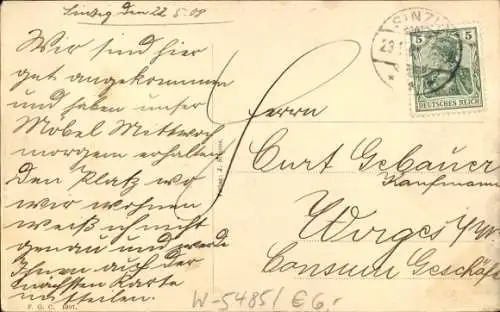 Sinzig den 22 5. 09
Wir sind hier
gut angekommen
und haben unser
Möbel Mittwoch
morgen erhalten
Den Platz wo
wir wohnen
weiß ich nicht
genau und werde
Ihnen auf der
nächsten Karte
mitteilen.
P. G. C. 1907.
SINZIG
5 5
DEUTSCHES REICH
Herrn
Curt Gebauer
Kaufmann
Wirges
Consum Geschäft
W-5485/ € 6,-